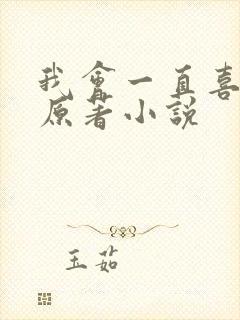 我會一直喜
原著小說
玉茹